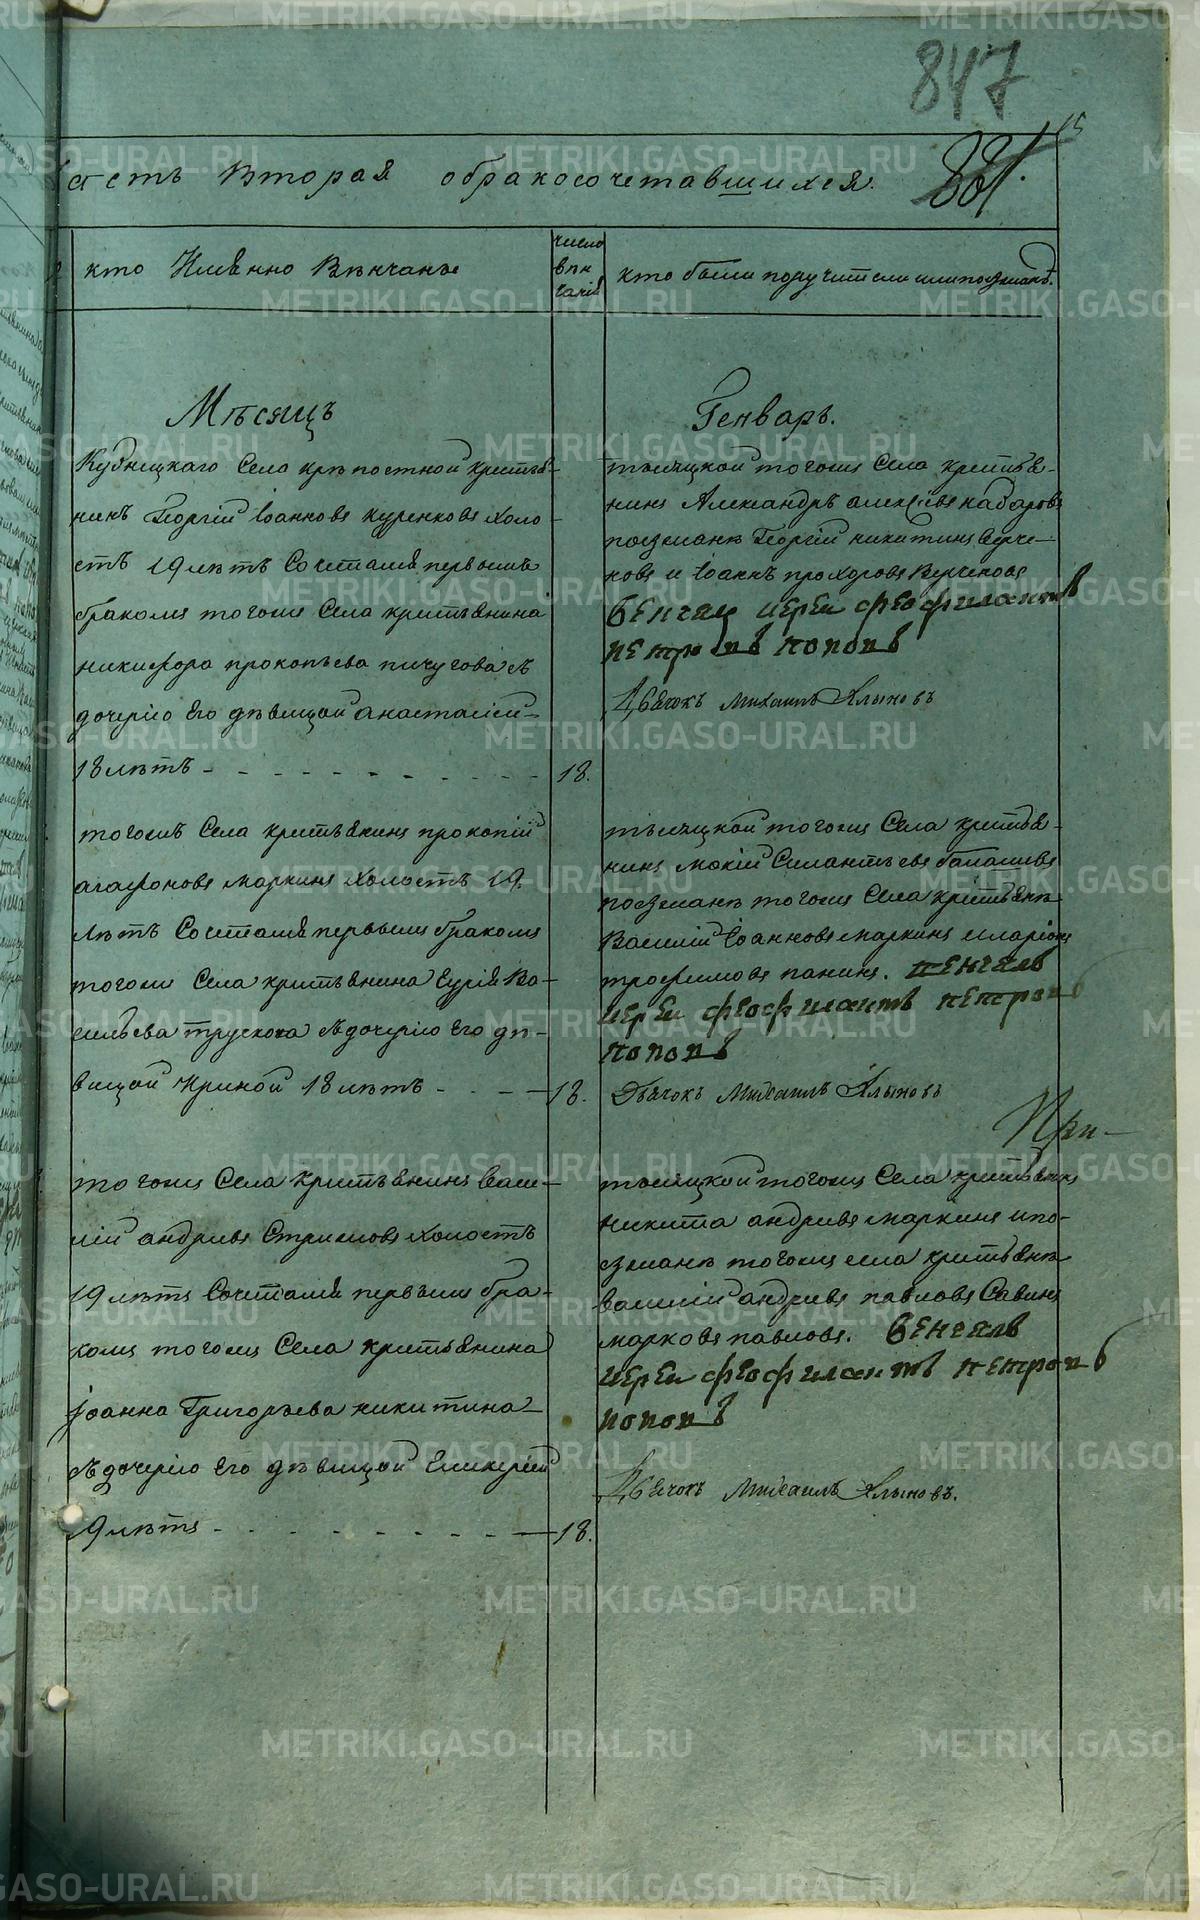 847
15
881.
Часть Вторая обракосочетавшихся.
кто Именно Венчанъ
число
вѣн
чанія
кто были поручители или поезжанѣ.
Мѣсяцъ
Генварь.
Кузнецкаго Села крѣпостной крестья-
нинъ Георгій Іоанновъ куренковъ Холо-
стъ 19 лѣтъ Сочетался первымъ
бракомъ тогожъ Села крестьянина
никифора прокопьева пичугова съ
дочерью Его дѣвицой анастасіей
18 лѣтъ - - - - - - - - 18.
тысяцкой тогожъ Села крестья-
нинъ Александръ алексѣевъ
поезжанѣ Георгій никитинъ Верче-
новъ и Іоаннъ прохоровъ Верченовъ
Венчал иереи феофилактъ
петровъ поповъ
Дьячокъ Михаилъ Хлыновъ
тогожъ Села крестьянинъ прокопій
агафоновъ маркинъ Холостъ 19.
лѣтъ Сочетался первымъ бракомъ
тогожъ Села крестьянина Гурія Ва-
сильева трускова съ дочерью Его дѣ-
вицой Ириной 18 лѣтъ - - - 18.
тысяцкой тогожъ Села крестья-
нинъ мокій Силантьевъ балашевъ
поезжанѣ тогожъ Села крестьянѣ
Василій Іоанновъ маркинъ иларіонъ
трофимовъ панинъ. венчалъ
иереи феофилактъ петровъ
поповъ
Дьячокъ Михаилъ Хлыновъ
При-
тогожъ Села крестьянинъ васи-
лій андриевъ Холостъ
19 лѣтъ Сочетался первымъ бра-
комъ тогожъ Села крестьянина
Іоанна Григорьева никитина
съ дочерью Его дѣвицой Гликеріей
19 лѣтъ - - - - - - - - 18.
тысяцкой тогожъ Села крестьянинъ
никита андриевъ маркинъ и по-
езжанѣ тогожъ села крестьянѣ
василій андриевъ павловъ Савинъ
марковъ павловъ. Венчалъ
иереи феофилактъ петровъ
поповъ
Дьячокъ Михаилъ Хлыновъ.
METRIKI.GASO-URAL.RU